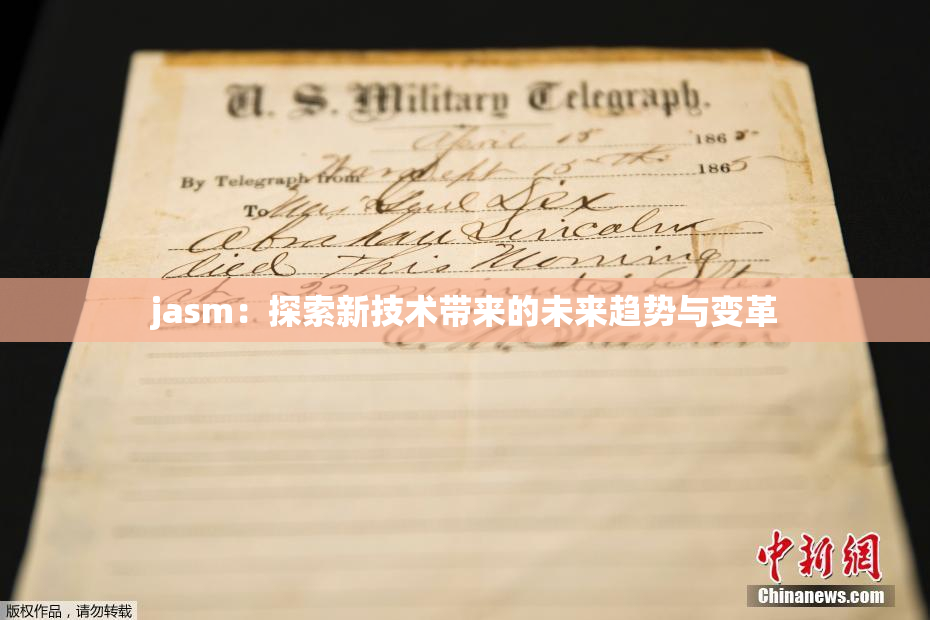 U. S. Military Telegraph.
April 15 1865
By Telegraph from War Dept 15th 1865
To Maj Genl Dix
Abraham Lincoln
died This Morning
at 22 minutes after
jasm：探索新技术带来的未来趋势与变革
中新网
Chinanews.com
版权作品，请勿转载